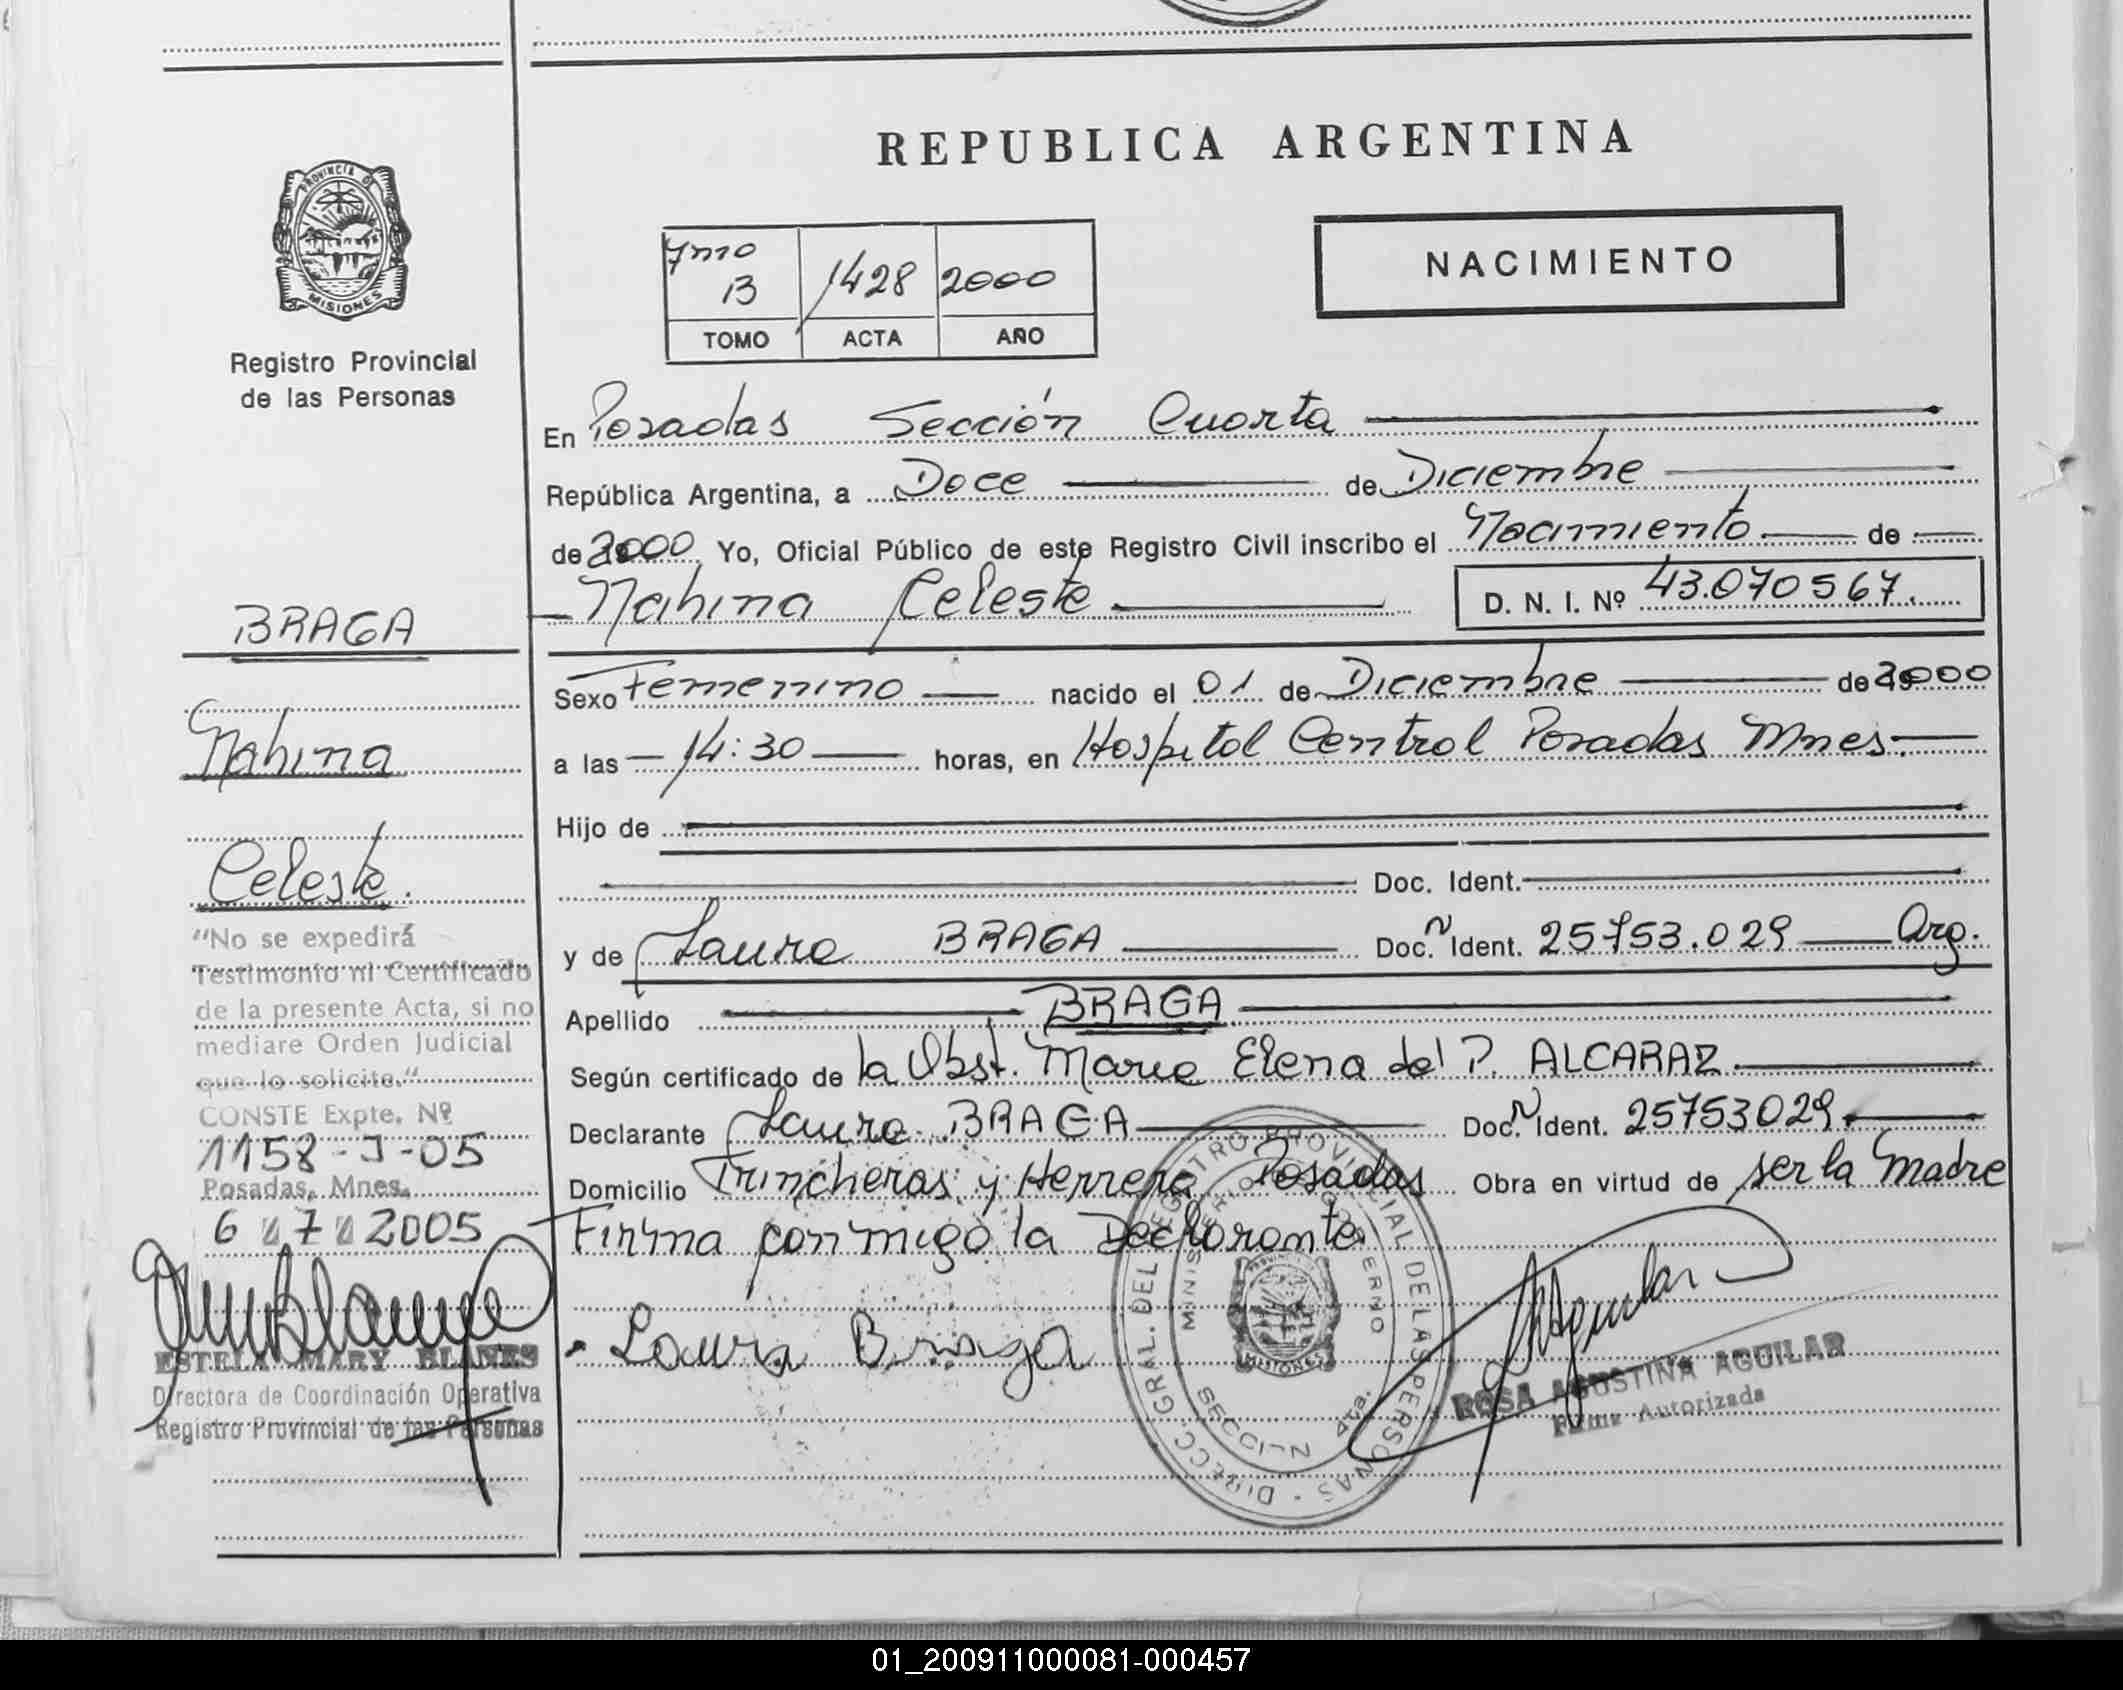 REPUBLICA ARGENTINA
PROVINCIA DE
MISIONES
Registro Provincial
de las Personas
NACIMIENTO
7mo
B 1428 2000
TOMO ACTA AÑO
En Posadas Sección Cuarta
República Argentina, a Doce de Diciembre
de 2000 Yo, Oficial Público de este Registro Civil inscribo el Nacimiento de
Nahina Celeste D. N. I. Nº 43.070567.
Sexo Femenino nacido el 01 de Diciembre de 2000
a las 14:30 horas, en Hospital Central Posadas Mnes.
Hijo de
Doc. Ident.
y de Laura BRAGA Doc. Ident. 25753.029 Arg.
Apellido BRAGA
Según certificado de la Obst. Maria Elena del P. ALCARAZ
Declarante Laura BRAGA Doc. Ident. 25753029
Domicilio Trincheras y Herrera Posadas Obra en virtud de ser la Madre
Firma conmigo la Declarante
Laura Braga
DIRECC. GRAL. DEL REGISTRO PROVINCIAL DE LAS PERSONAS
MINISTERIO GOBIERNO
MISIONES
SECCION 4ta.
RAguilar
ROSA AGUSTINA AGUILAR
Firma Autorizada
BRAGA
Nahina
Celeste.
"No se expedirá
Testimonio ni Certificado
de la presente Acta, si no
mediare Orden Judicial
que lo solicite."
CONSTE Expte. Nº
1158-J-05
Posadas, Mnes.
6 7 2005
ESTELA MARY BLANES
Directora de Coordinación Operativa
Registro Provincial de las Personas
01_200911000081-000457